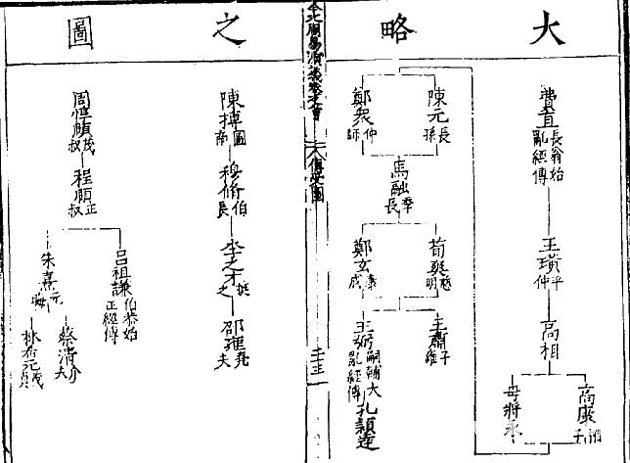 大略之圖
費直長翁始亂經傳
王璜平仲
高相
高康相子
毋將永
陳元長孫
鄭衆仲師
馬融季長
荀爽慈明
鄭玄康成
王肅子雍
王弼嗣輔大亂經傳
孔穎達
傳受圖
陳摶圖南
穆脩伯長
李之才挺之
邵雍堯夫
周惇頤茂叔
程頤正叔
呂祖謙伯恭始正經傳
朱熹元晦
蔡清介夫
林希元茂貞